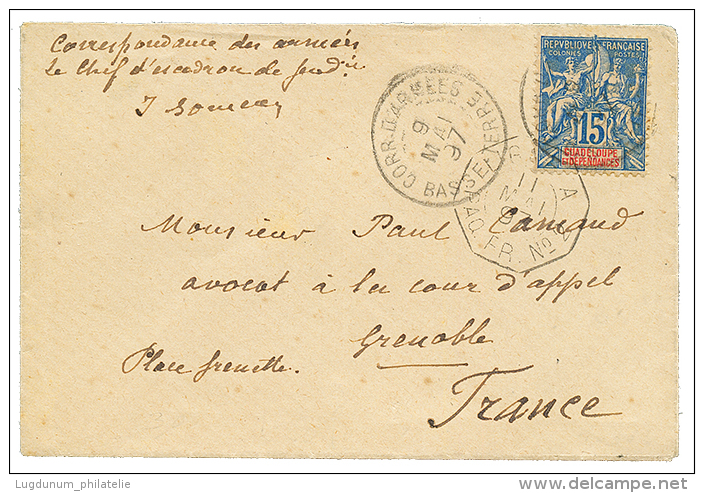 Correspondance des armées
Le Chef d'escadron de
J
REPVBLIQVE FRANÇAISE
COLONIES POSTES
15
GUADELOUPE
ET DÉPENDANCES
CORR. D'ARMÉES BASSE-TERRE
9
MAI
97
11
MAI
PAQ. FR. No
Monsieur Paul
avocat à la cour d'appel
Grenoble
Place grenette.
France
Lugdunum_philatelie
delcampe.net